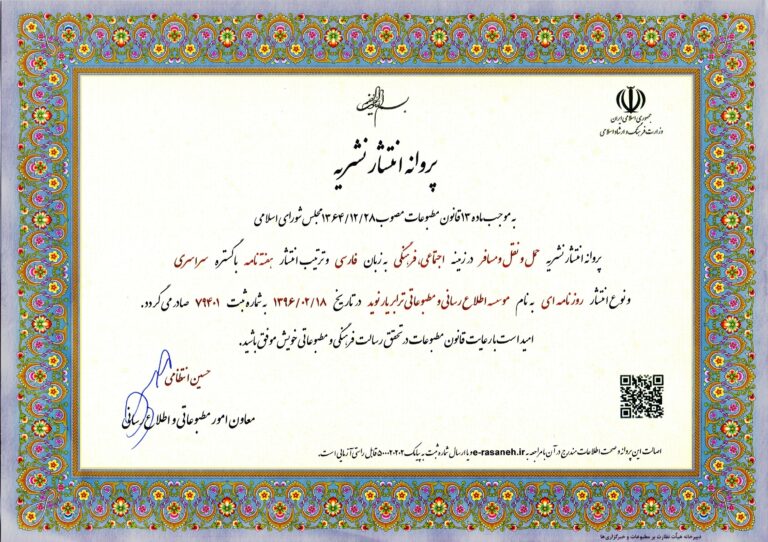 بسم الله الرحمن الرحیم
جمهوری اسلامی ایران
وزارت فرهنگ و ارشاد اسلامی
پروانه انتشار نشریه
به موجب ماده ۱۳ قانون مطبوعات مصوب ۱۳۶۴/۱۲/۲۸ مجلس شورای اسلامی
پروانه انتشار نشریه حمل و نقل و مسافر در زمینه اجتماعی، فرهنگی به زبان فارسی و ترتیب انتشار هفته نامه با گستره سراسری
و نوع انتشار روزنامه ای به نام موسسه اطلاع رسانی و مطبوعاتی ترابر یار نوید در تاریخ ۱۳۹۶/۰۲/۱۸ به شماره ثبت ۷۹۴۰۱ صادر می گردد.
امید است با رعایت قانون مطبوعات در تحقق رسالت فرهنگی و مطبوعاتی خویش موفق باشید.
حسین انتظامی
معاون امور مطبوعاتی و اطلاع رسانی
اصالت این پروانه و صحت اطلاعات مندرج در آن با مراجعه به e-rasaneh.ir و یا ارسال شماره ثبت به پیامک ۵۰۰۰۲۰۲۰۲ قابل راستی آزمایی است.
دبیرخانه هیأت نظارت بر مطبوعات و خبرگزاری‌ها